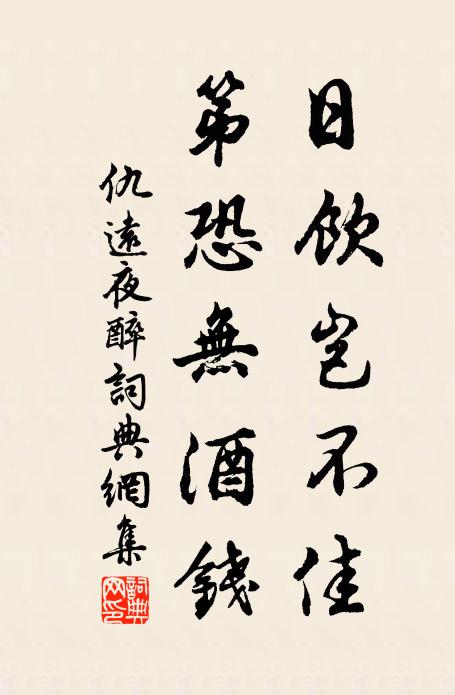 日飲豈不佳
第恐無酒錢
仇遠夜醉詞典網集
詞典網印